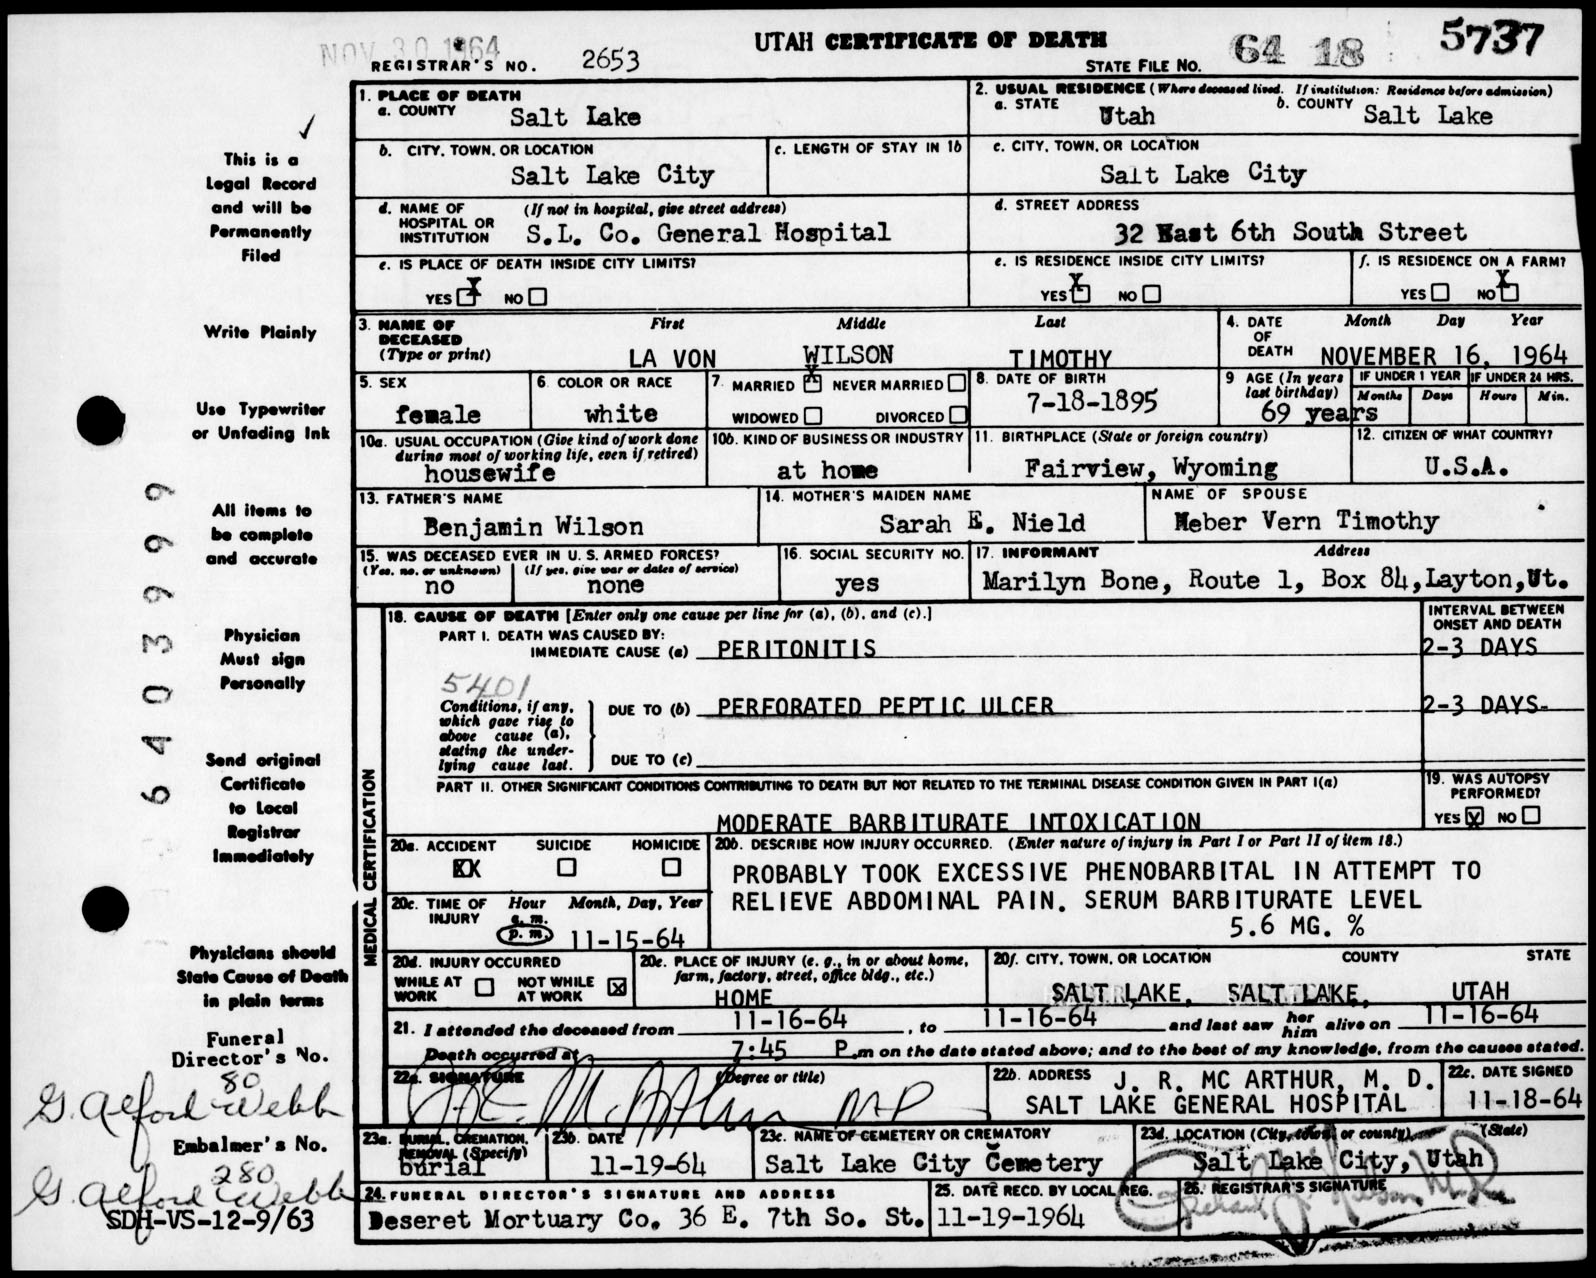 NOV 30 1964
UTAH CERTIFICATE OF DEATH
64 18 5737
REGISTRAR'S NO. 2653
STATE FILE NO.
1. PLACE OF DEATH
a. COUNTY Salt Lake
2. USUAL RESIDENCE (Where deceased lived. If institution: Residence before admission)
a. STATE Utah b. COUNTY Salt Lake
b. CITY, TOWN, OR LOCATION Salt Lake City
c. LENGTH OF STAY IN 1b
c. CITY, TOWN, OR LOCATION Salt Lake City
d. NAME OF HOSPITAL OR INSTITUTION (If not in hospital, give street address)
S.L. Co. General Hospital
d. STREET ADDRESS
32 East 6th South Street
e. IS PLACE OF DEATH INSIDE CITY LIMITS?
YES X NO
e. IS RESIDENCE INSIDE CITY LIMITS?
YES X NO
f. IS RESIDENCE ON A FARM?
YES NO X
3. NAME OF DECEASED (Type or print)
First Middle Last
LA VON WILSON TIMOTHY
4. DATE OF DEATH Month Day Year
NOVEMBER 16, 1964
5. SEX female
6. COLOR OR RACE white
7. MARRIED X NEVER MARRIED
WIDOWED DIVORCED
8. DATE OF BIRTH 7-18-1895
9 AGE (In years last birthday) 69 years
IF UNDER 1 YEAR Months Days
IF UNDER 24 HRS. Hours Min.
10a. USUAL OCCUPATION (Give kind of work done during most of working life, even if retired)
housewife
10b. KIND OF BUSINESS OR INDUSTRY
at home
11. BIRTHPLACE (State or foreign country)
Fairview, Wyoming
12. CITIZEN OF WHAT COUNTRY?
U.S.A.
13. FATHER'S NAME
Benjamin Wilson
14. MOTHER'S MAIDEN NAME
Sarah E. Nield
NAME OF SPOUSE
Heber Vern Timothy
15. WAS DECEASED EVER IN U.S. ARMED FORCES?
(Yes, no, or unknown) (If yes, give war or dates of service)
no none
16. SOCIAL SECURITY NO.
yes
17. INFORMANT Address
Marilyn Bone, Route 1, Box 84, Layton, Ut.
MEDICAL CERTIFICATION
18. CAUSE OF DEATH [Enter only one cause per line for (a), (b), and (c).]
INTERVAL BETWEEN ONSET AND DEATH
PART I. DEATH WAS CAUSED BY:
IMMEDIATE CAUSE (a) PERITONITIS 2-3 DAYS
5401
Conditions, if any, which gave rise to above cause (a), stating the underlying cause last.
DUE TO (b) PERFORATED PEPTIC ULCER 2-3 DAYS-
DUE TO (c)
PART II. OTHER SIGNIFICANT CONDITIONS CONTRIBUTING TO DEATH BUT NOT RELATED TO THE TERMINAL DISEASE CONDITION GIVEN IN PART I(a)
MODERATE BARBITURATE INTOXICATION
19. WAS AUTOPSY PERFORMED?
YES X NO
20a. ACCIDENT SUICIDE HOMICIDE
XX
20b. DESCRIBE HOW INJURY OCCURRED. (Enter nature of injury in Part I or Part II of item 18.)
PROBABLY TOOK EXCESSIVE PHENOBARBITAL IN ATTEMPT TO
RELIEVE ABDOMINAL PAIN. SERUM BARBITURATE LEVEL
5.6 MG. %
20c. TIME OF INJURY Hour Month, Day, Year
a.m.
p.m. 11-15-64
20d. INJURY OCCURRED
WHILE AT WORK NOT WHILE AT WORK X
20e. PLACE OF INJURY (e.g., in or about home, farm, factory, street, office bldg., etc.)
HOME
20f. CITY, TOWN, OR LOCATION COUNTY STATE
SALT LAKE, SALT LAKE, UTAH
21. I attended the deceased from 11-16-64, to 11-16-64 and last saw her him alive on 11-16-64
Death occurred at 7:45 P.m on the date stated above; and to the best of my knowledge, from the causes stated.
22a. SIGNATURE (Degree or title)
22b. ADDRESS J. R. MC ARTHUR, M. D.
SALT LAKE GENERAL HOSPITAL
22c. DATE SIGNED
11-18-64
23a. BURIAL, CREMATION, REMOVAL (Specify)
burial
23b. DATE
11-19-64
23c. NAME OF CEMETERY OR CREMATORY
Salt Lake City Cemetery
23d. LOCATION (City, town, or county) (State)
Salt Lake City, Utah
24. FUNERAL DIRECTOR'S SIGNATURE AND ADDRESS
Deseret Mortuary Co. 36 E. 7th So. St.
25. DATE RECD. BY LOCAL REG.
11-19-1964
26. REGISTRAR'S SIGNATURE
This is a
Legal Record
and will be
Permanently
Filed
Write Plainly
Use Typewriter
or Unfading Ink
All items to
be complete
and accurate
Physician
Must sign
Personally
Send original
Certificate
to Local
Registrar
Immediately
Physicians should
State Cause of Death
in plain terms
Funeral
Director's No.
80
G. Alford Webb
Embalmer's No.
280
G. Alford Webb
SDH-VS-12-9/63
64039999